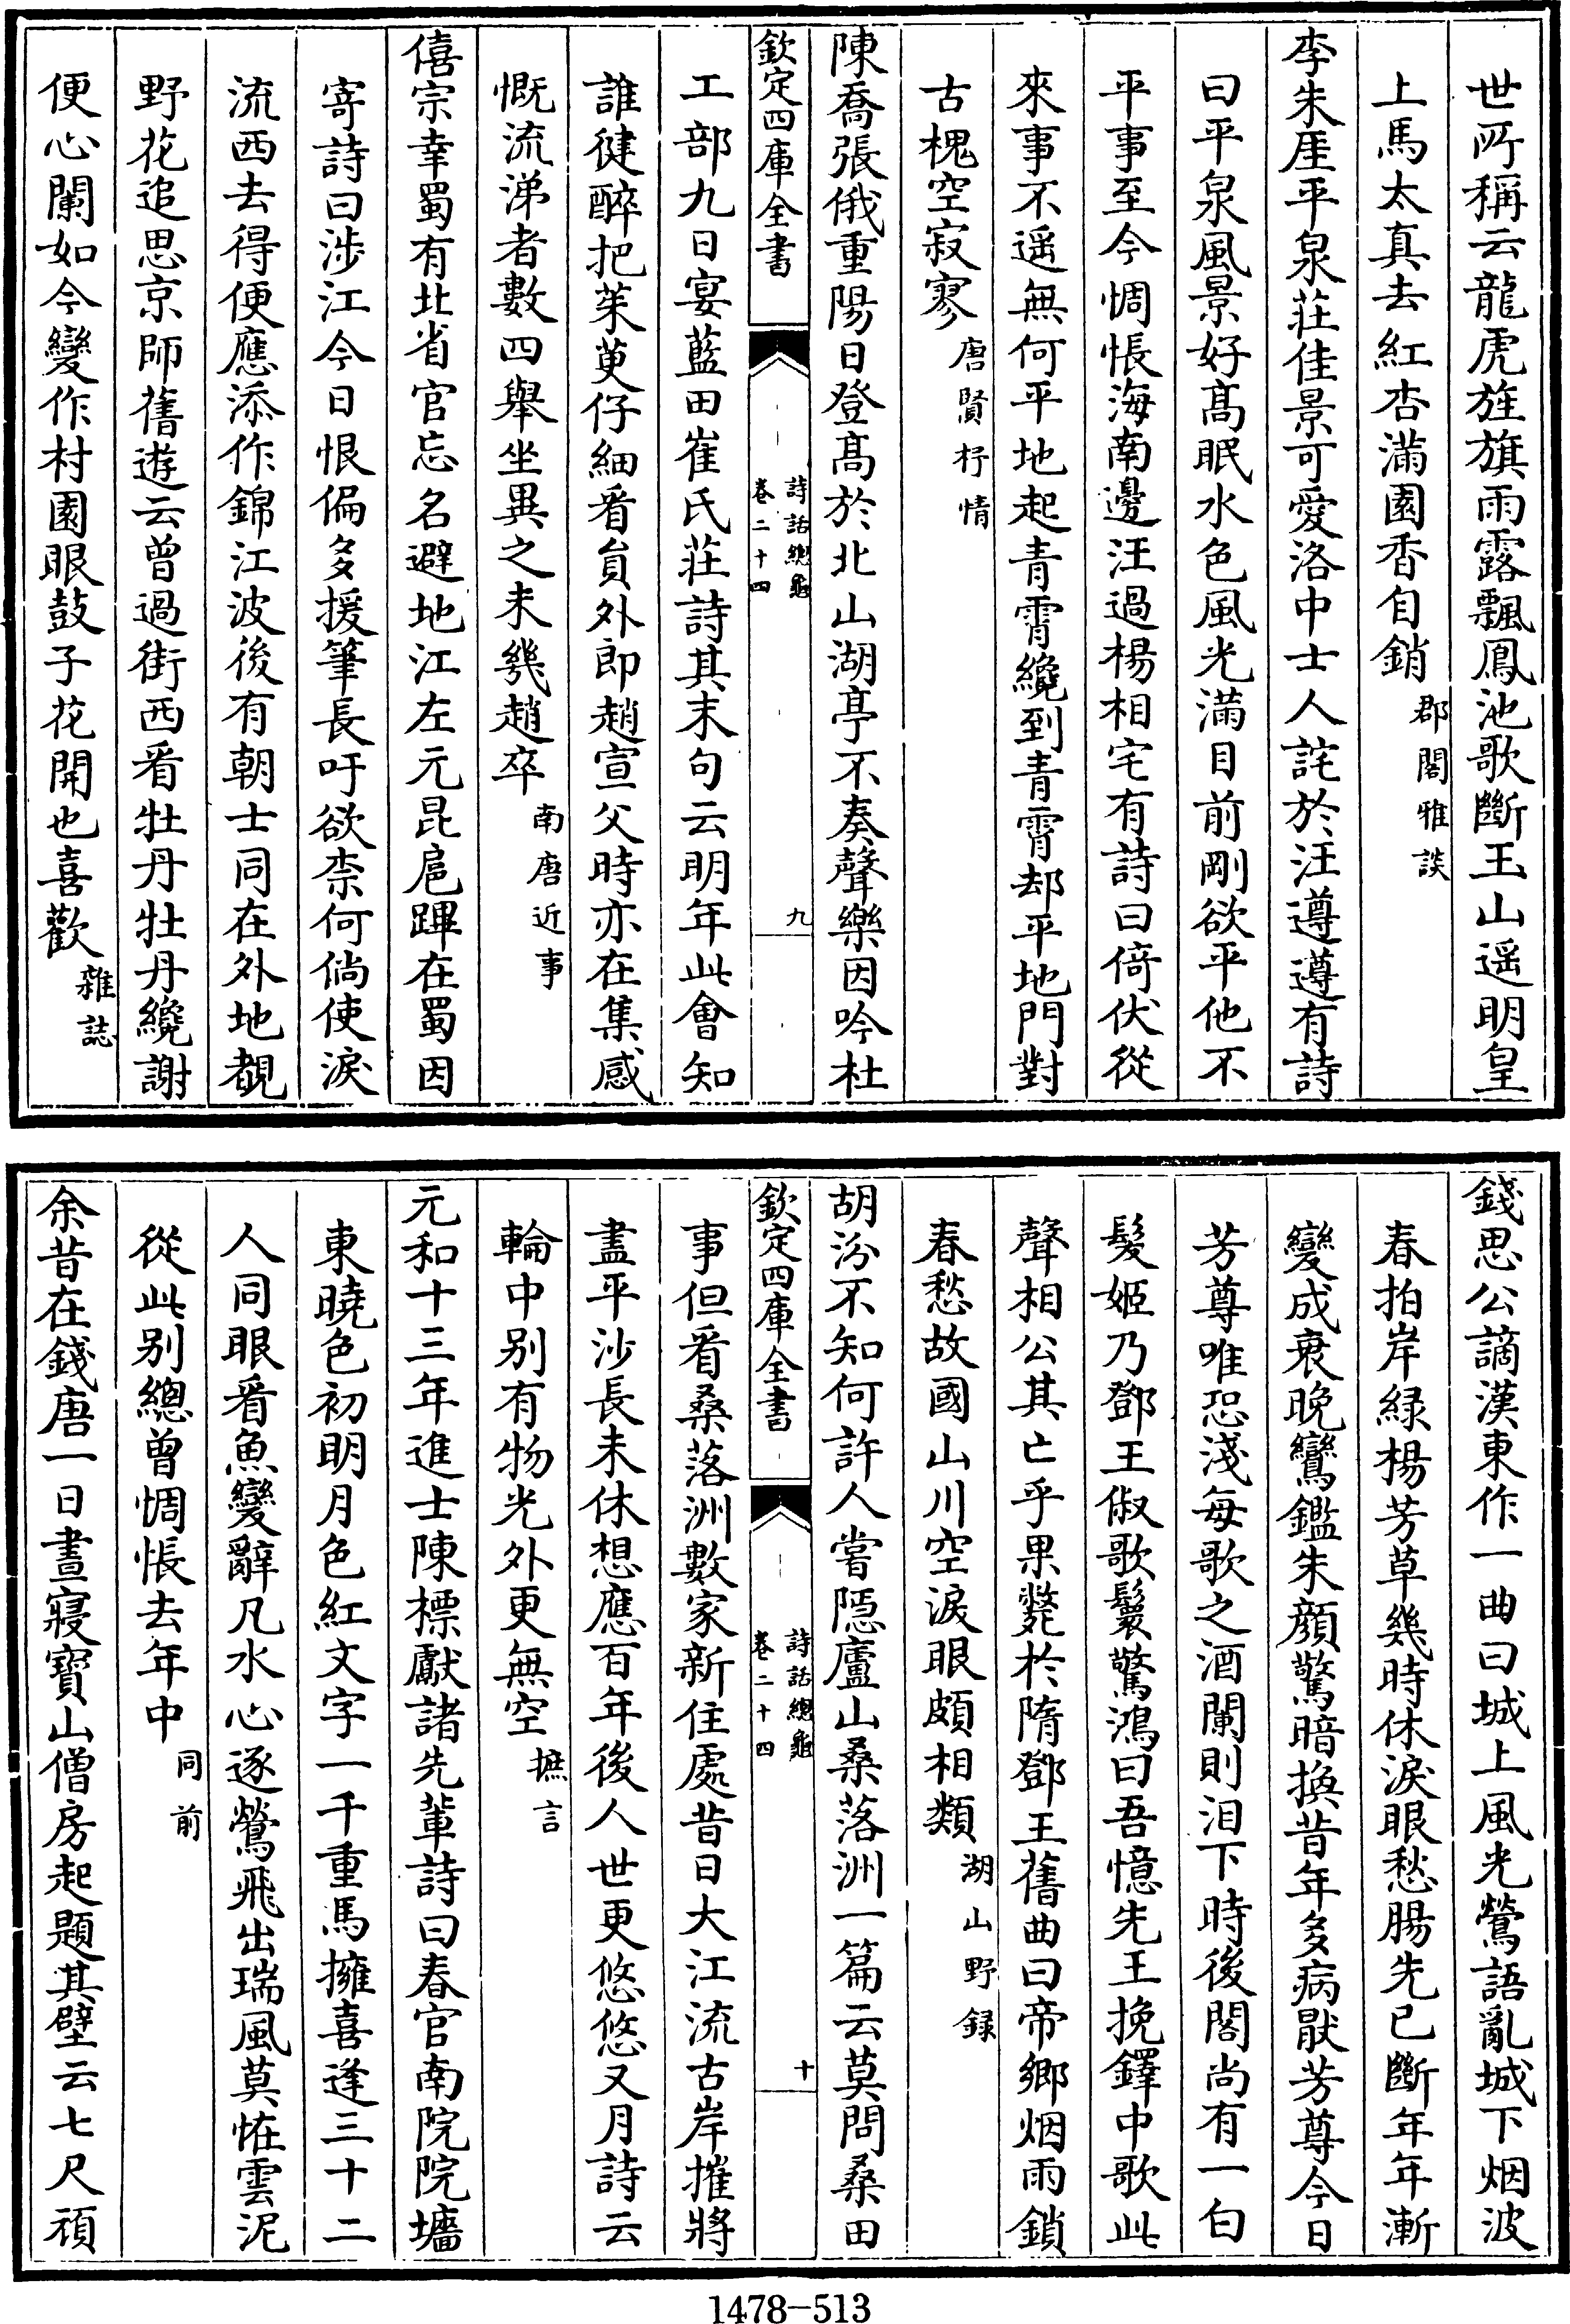 世所稱云龍虎旌旗雨露飄鳳池歌斷玉山遥明皇
上馬太真去紅杏滿園香自銷郡閣雅談
李朱厓平泉莊佳景可愛洛中士人詫於汪遵遵有詩
曰平泉風景好髙眠水色風光滿目前剛欲平他不
平事至今惆悵海南邊汪過楊相宅有詩曰倚伏從
來事不遥無何平地起青霄纔到青霄却平地門對
古槐空寂寥唐賢抒情
陳喬張俄重陽日登髙於北山湖亭不奏聲樂因吟杜
欽定四庫全書
詩話總龜
卷二十四
九
工部九日宴藍田崔氏莊詩其末句云明年此會知
誰健醉把茱萸仔細看員外郎趙宣父時亦在集感
慨流涕者數四舉坐異之未幾趙卒南唐近事
僖宗幸蜀有北省官忘名避地江左元昆扈蹕在蜀因
寄詩曰涉江今日恨偏多援筆長吁欲柰何倘使淚
流西去得便應添作錦江波後有朝士同在外地覩
野花追思京師舊遊云曾過街西看牡丹牡丹纔謝
便心闌如今變作村園眼鼓子花開也喜歡雜誌
錢思公謫漢東作一曲曰城上風光鶯語亂城下烟波
春拍岸緑楊芳草幾時休淚眼愁腸先已斷年年漸
變成衰晩鸞鑑朱顔驚暗換昔年多病厭芳尊今日
芳尊唯恐淺每歌之酒闌則泪下時後閣尚有一白
髮姬乃鄧王俶歌鬟驚鴻曰吾憶先王挽鐸中歌此
聲相公其亡乎果斃於隋鄧王舊曲曰帝鄉烟雨鎖
春愁故國山川空淚眼頗相類湖山野録
胡汾不知何許人嘗隠廬山桑落洲一篇云莫問桑田
欽定四庫全書
詩話總龜
卷二十四
十
事但看桑落洲數家新住處昔日大江流古岸摧將
盡平沙長未休想應百年後人世更悠悠又月詩云
輪中别有物光外更無空摭言
元和十三年進士陳標獻諸先輩詩曰春官南院院墻
東曉色初明月色紅文字一千重馬擁喜逢三十二
人同眼看魚變辭凡水心逐鶯飛出瑞風莫恠雲泥
從此别總曾惆悵去年中同前
余昔在錢唐一日晝寢寳山僧房起題其壁云七尺頑
1478—513